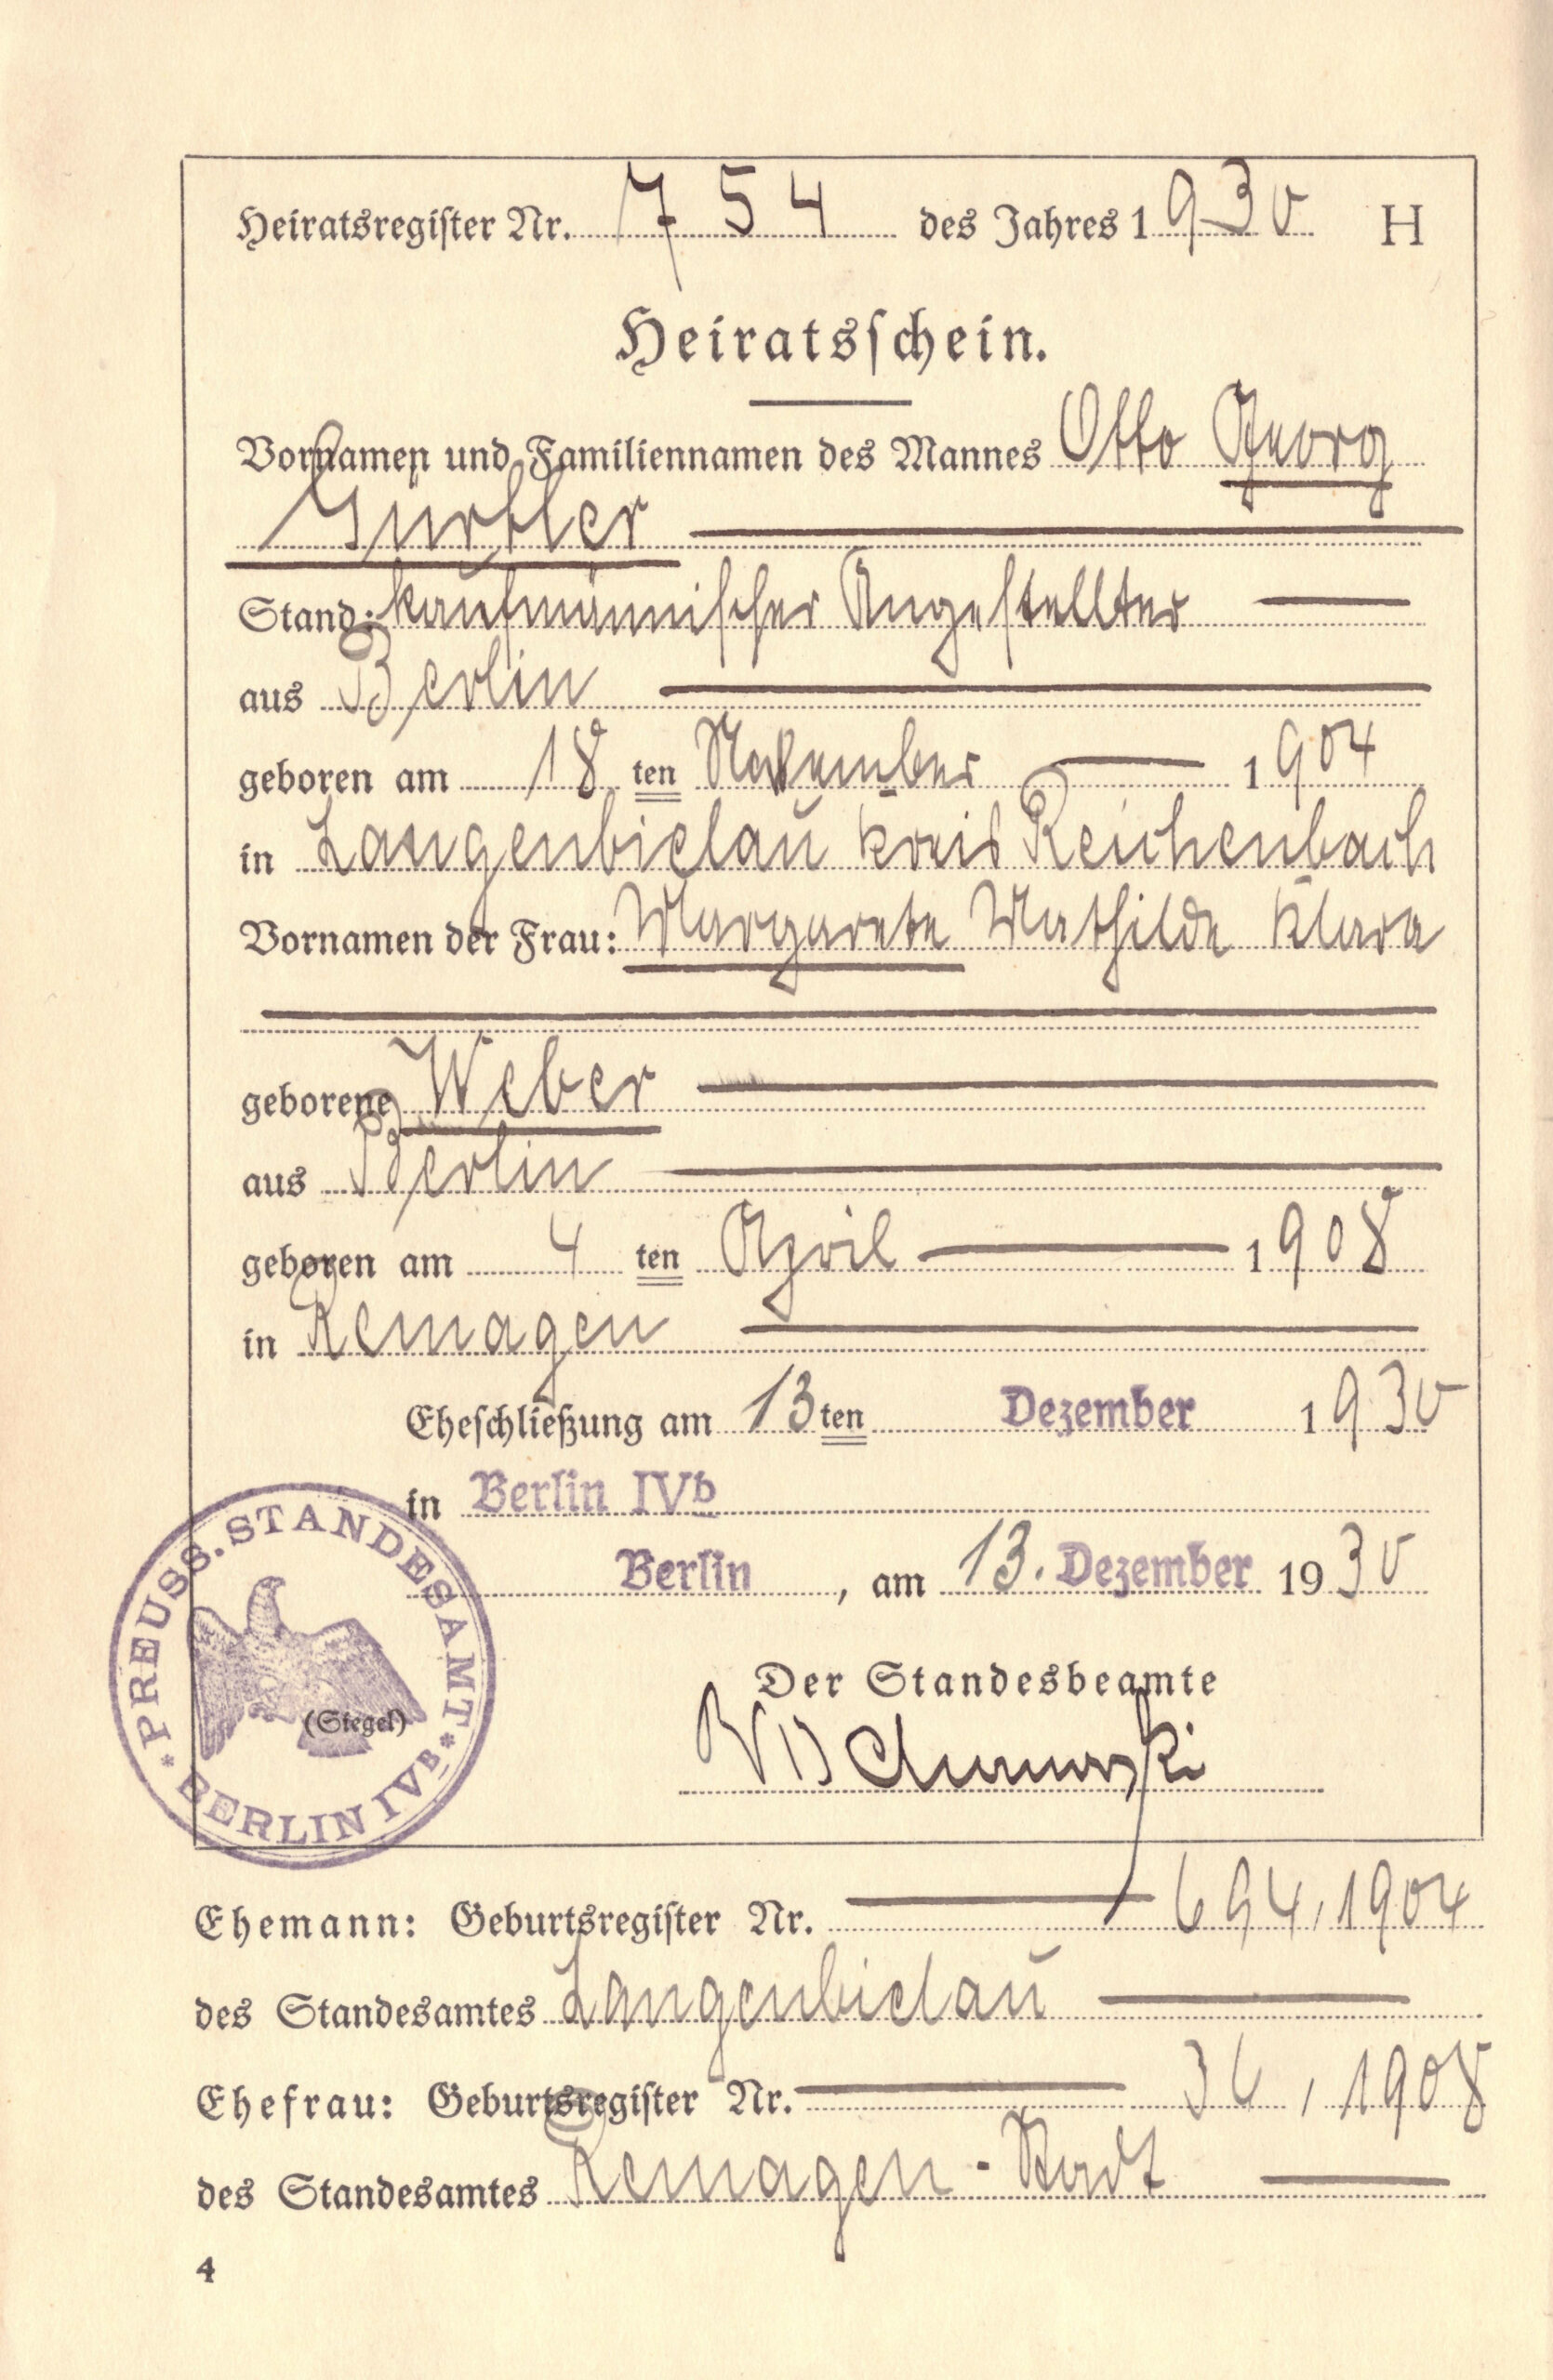 Heiratsregister Nr. 754 des Jahres 1930 H
Heiratsschein.
Vornamen und Familiennamen des Mannes Otto Georg
Gürtler
Stand: kaufmännischer Angestellter
aus Berlin
geboren am 18 ten November 1904
in Langenbielau Kreis Reichenbach
Vornamen der Frau: Margarete Mathilde Klara
geborene Weber
aus Berlin
geboren am 4 ten April 1908
in Remagen
Eheschließung am 13 ten Dezember 1930
in Berlin IVb
Berlin, am 13. Dezember 1930
PREUSS. STANDESAMT * BERLIN IVB *
(Siegel)
Der Standesbeamte
Ehemann: Geburtsregister Nr. 694, 1904
des Standesamtes Langenbielau
Ehefrau: Geburtsregister Nr. 36, 1908
des Standesamtes Remagen-Stadt
4